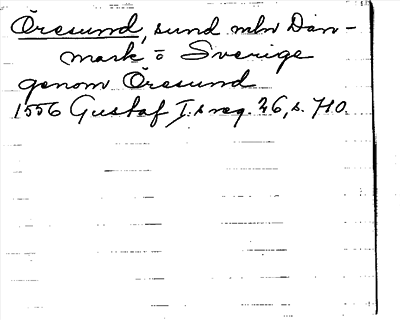 Öresund, sund mln Dan-
mark o Sverige
genom Öresund
1556 Gustaf I:s reg. 26, s. 710.